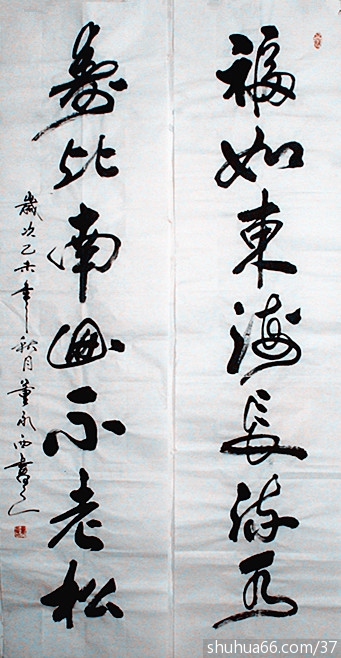 福如東海長流水
壽比南山不老松
歲次乙未年秋月董永西書
shuhua66.com/37